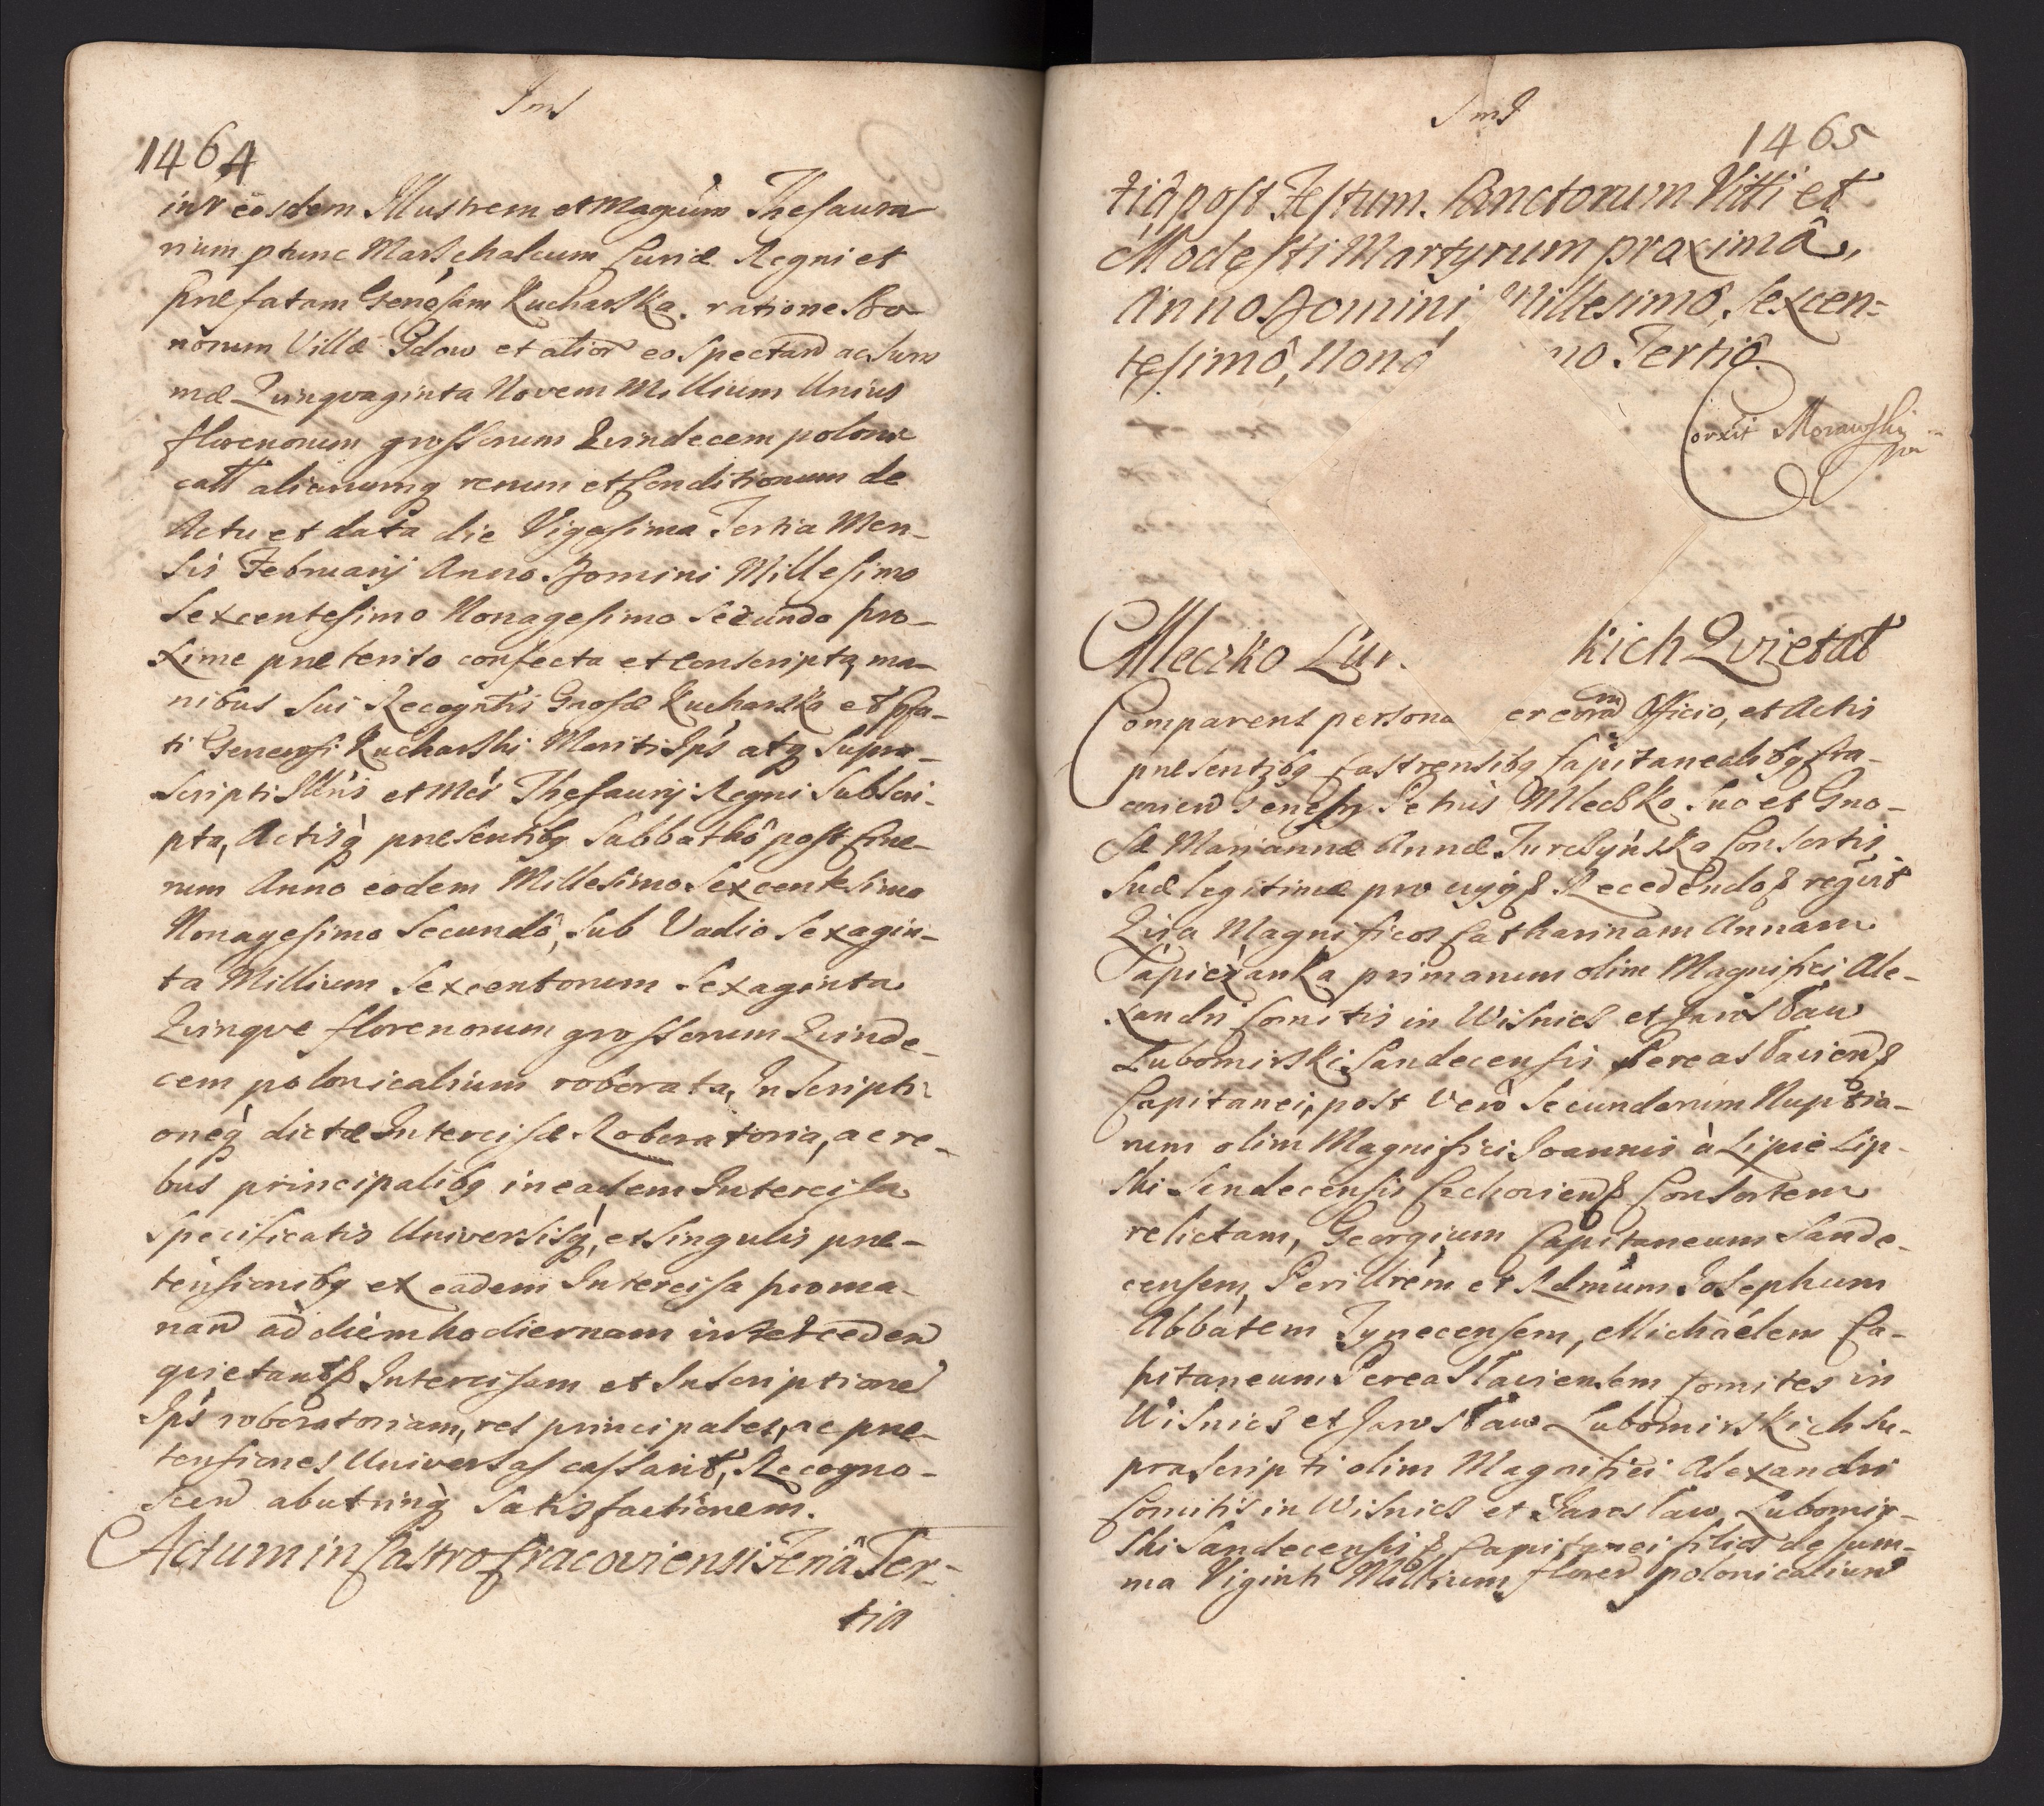 Sms
1464
intr eosdem Illustrem et Magcum Thesaura
rium ptunc Marschalcum Curiæ Regni et
præfatam Generosam Kucharska. ratione Bo-
norum Villæ Gdow et alior eo spectan ac sum
mæ Qvinqvaginta Novem Millium Unius
florenorum grossorum Qvindecem polon
catt aliarumq rerum et Conditionum de
Actu et data die Vigesima Tertia Men-
sis Februarij Anno Domini Millesimo
Sexcentesimo Nonagesimo Secundo pro-
xime præterito confecta et conscripta, ma-
nibus sui Recogntis Gnosæ Kucharska et pfa-
ti Generosi Kucharski Mariti Ips atq supra-
scripti Illris et Mci Thesaurij Regni Subscri-
pta, Actisq præsentibq Sabbathô post Cine-
rum Anno eodem Millesimo Sexcentesimo
Nonagesimo Secundô, sub Vadio Sexagin-
ta Millium Sexcentorum Sexaginta
Qvinqve florenorum grossorum Qvinde-
cem polonicalium roborata, Inscripti-
oneq dictæ Intercisæ Roboratoria, ac re-
bus principalibq in eadem Intercisa
specificatis Universisq, et singulis præ-
tensionibq ex eadem Intercisa proma-
nan ad diem hodiernam
quietant Intercisam et Inscriptione
Ips roboratoriam, res principales, ac præ-
tensiones Universas cassant, Recogno-
scen abutrinq satisfactionem.
Actum in Castro Cracoviensi Feriâ Ter-
tia
Sms
1465
tiâ post Festum. Sanctorum Vitti et
Modesti Martyrum proximâ,
Anno Domini Millesimô, Sexcen-
tesimô, Nona no Tertiô.
Corxit Morawski
Mleczko Lu kich Qvietat
Comparens persona er coram Officio, et Actis
præsentibq Castrensibq Capitanealibq Cra-
covien Generosq Petrus Mleczko suo et Gno-
sæ Mariannæ Annæ Jurczyńska Consortis
suæ legitimæ pro
Magnificos Catharinam Annam
Sapieżanka primarum olim Magnifici Ale-
xandri Comitis in Wisnicz et Jarosław
Lubomirski Sandecensis Pereasławien
Capitanei, post verò Secundarum Nuptia-
rum olim Magnifici Joannis à Lipie Lip-
ski Sendecensis Czchovien Consortem
relictam, Georgium Capitaneum Sande-
censem, Perillrem et Rdmum Josephum
Abbatem Tynecensem, Michaëlem Ca-
pitaneum Pereasławiensem Comites in
Wisnicz et Jarosław Lubomirskich su-
prascripti olim Magnifici Alexandri
Comitis in Wisnicz et Jarosław Lubomir-
ski Sandecensis Capitanei filios de sum-
ma Viginti Millium floren polonicalium